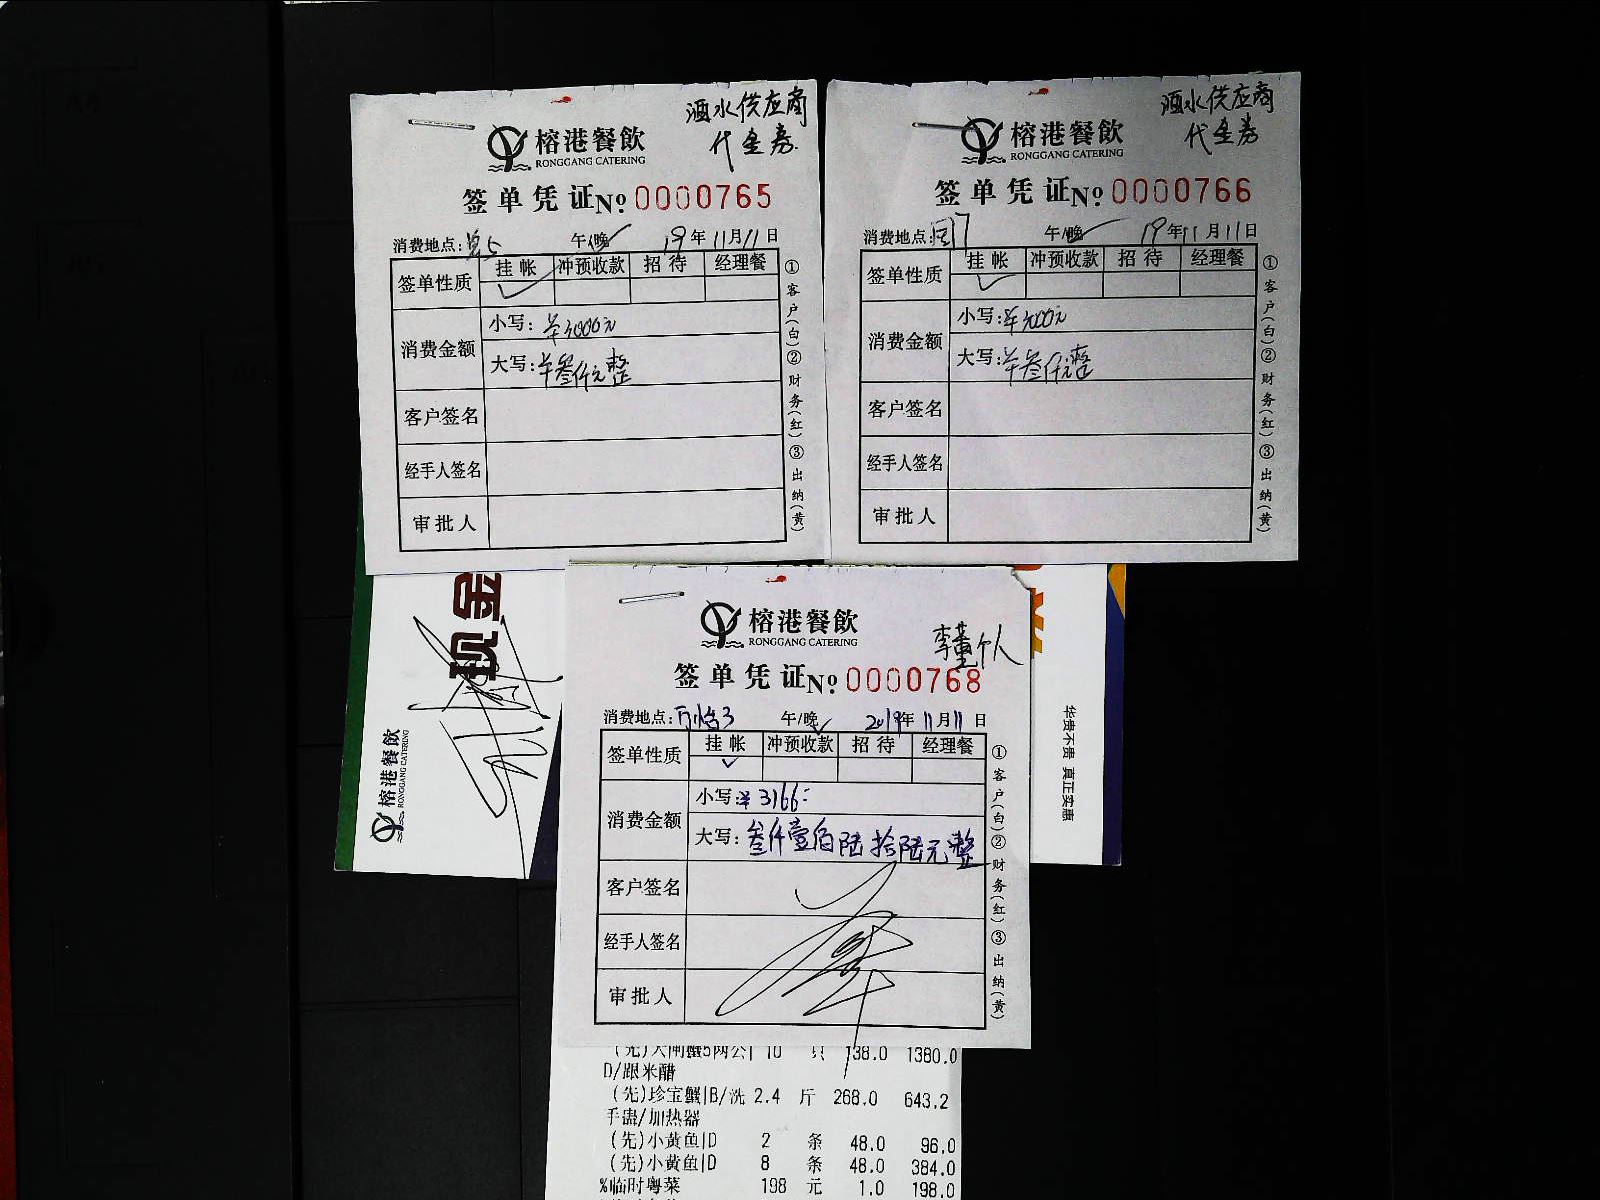 酒水供应商
代金券
榕港餐飲
RONGGANG CATERING
签单凭证№ 0000765
消费地点: 午/晚 19年11月11日
签单性质 挂帐 冲预收款 招待 经理餐
消费金额 小写: ¥3000元
大写: 叁仟元整
客户签名
经手人签名
审批人
①客户(白)②财务(红)③出纳(黄)
酒水供应商
代金券
榕港餐飲
RONGGANG CATERING
签单凭证№ 0000766
消费地点: 午/晚 19年11月11日
签单性质 挂帐 冲预收款 招待 经理餐
消费金额 小写: ¥3000元
大写: 叁仟元整
客户签名
经手人签名
审批人
①客户(白)②财务(红)③出纳(黄)
现金
榕港餐飲
RONGGANG CATERING
华贵不贵 真正实惠
榕港餐飲
RONGGANG CATERING
李董个人
签单凭证№ 0000768
消费地点: 午/晚 2019年11月11日
签单性质 挂帐 冲预收款 招待 经理餐
消费金额 小写: ¥3166
大写: 叁仟壹佰陆拾陆元整
客户签名
经手人签名
审批人
①客户(白)②财务(红)③出纳(黄)
(先)大闸蟹5两公| 10 只 138.0 1380.0
D/跟米醋
(先)珍宝蟹|B/洗 2.4 斤 268.0 643.2
手盅/加热器
(先)小黄鱼|D 2 条 48.0 96.0
(先)小黄鱼|D 8 条 48.0 384.0
%临时粤菜 198 元 1.0 198.0